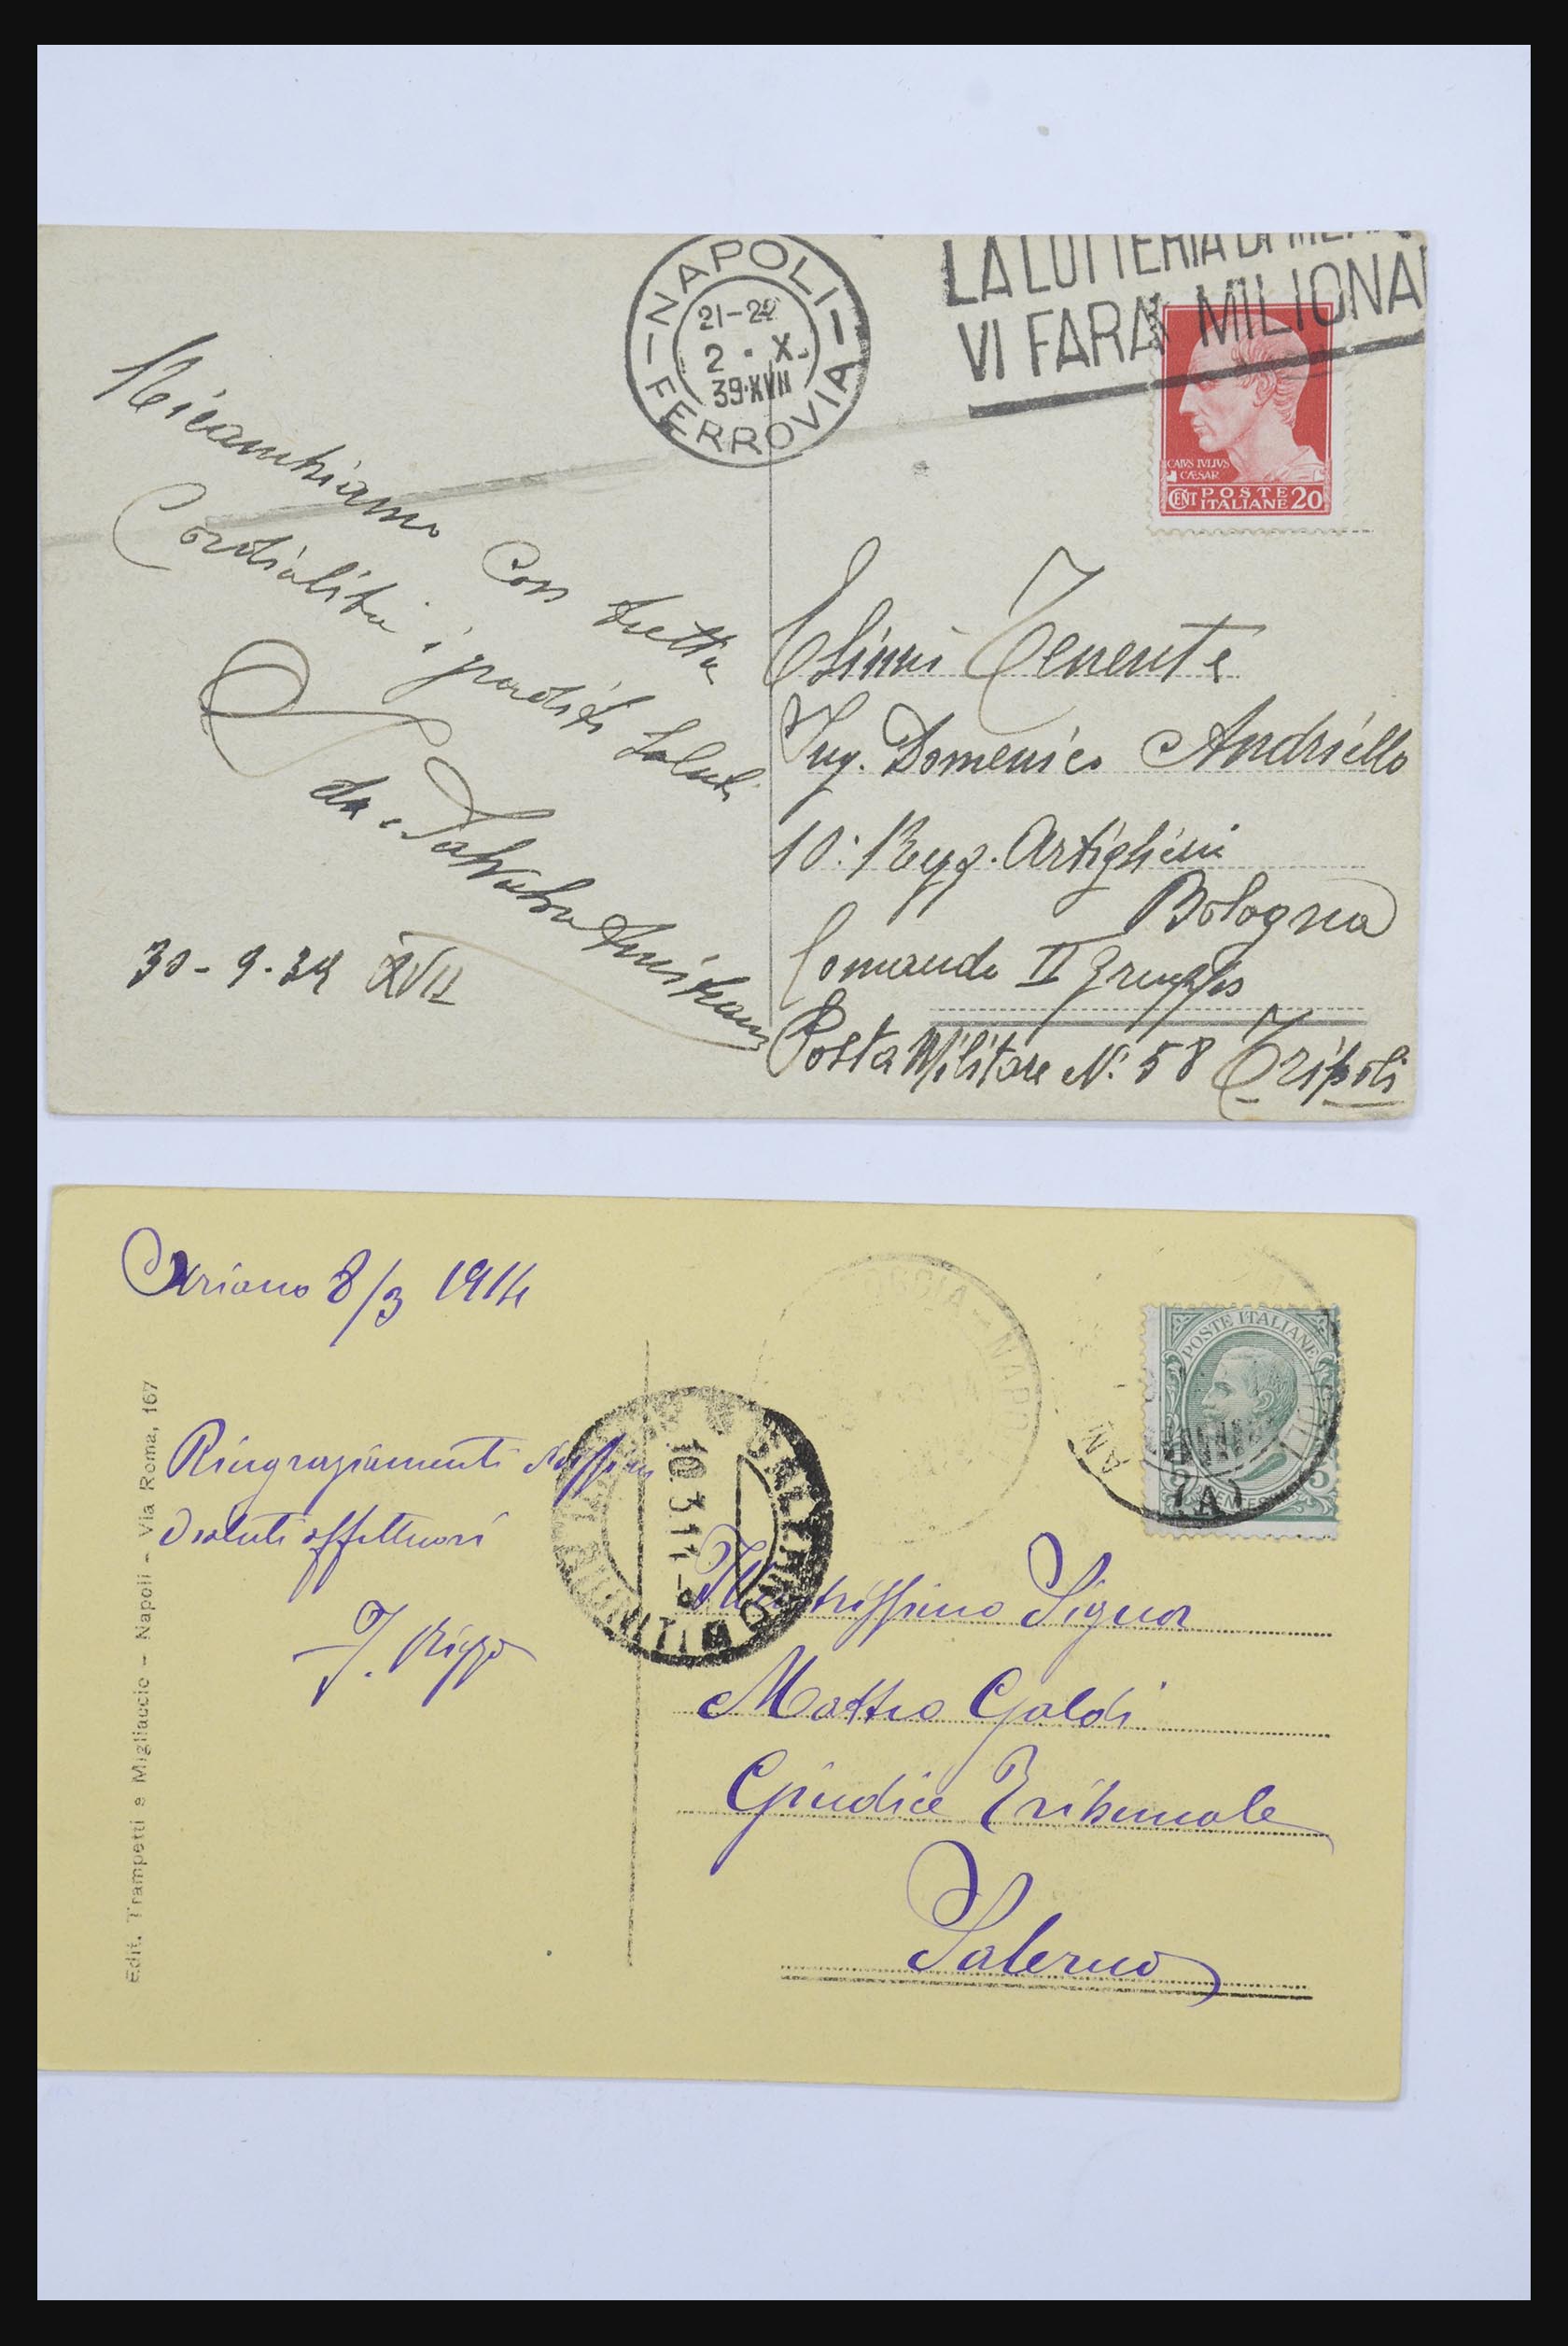 NAPOLI
21-22
2 · X.
39·XVII
FERROVIA
LA LOTTERIA DI
VI FARA' MILIONA
CAIVS IVLIVS
CÆSAR
CENT POSTE ITALIANE 20
Ricambiamo con
Cordialità i graditi saluti
da
30-9-39 XVII
Tenente
Ing. Domenico Andriello
10: Regg. Artiglieri
Bologna
Comando II Gruppo
Posta Militare N. 58 Tripoli
Ariano 8/3 1914
Ringraziamenti
saluti affettuosi
J. Rizzo
Edit. Trampetti e Migliaccio - Napoli - Via Roma, 167
10.3.14-8
POSTE ITALIANE
5
Illustrissimo Signor
Matteo Galdi
Giudice Tribunale
Salerno